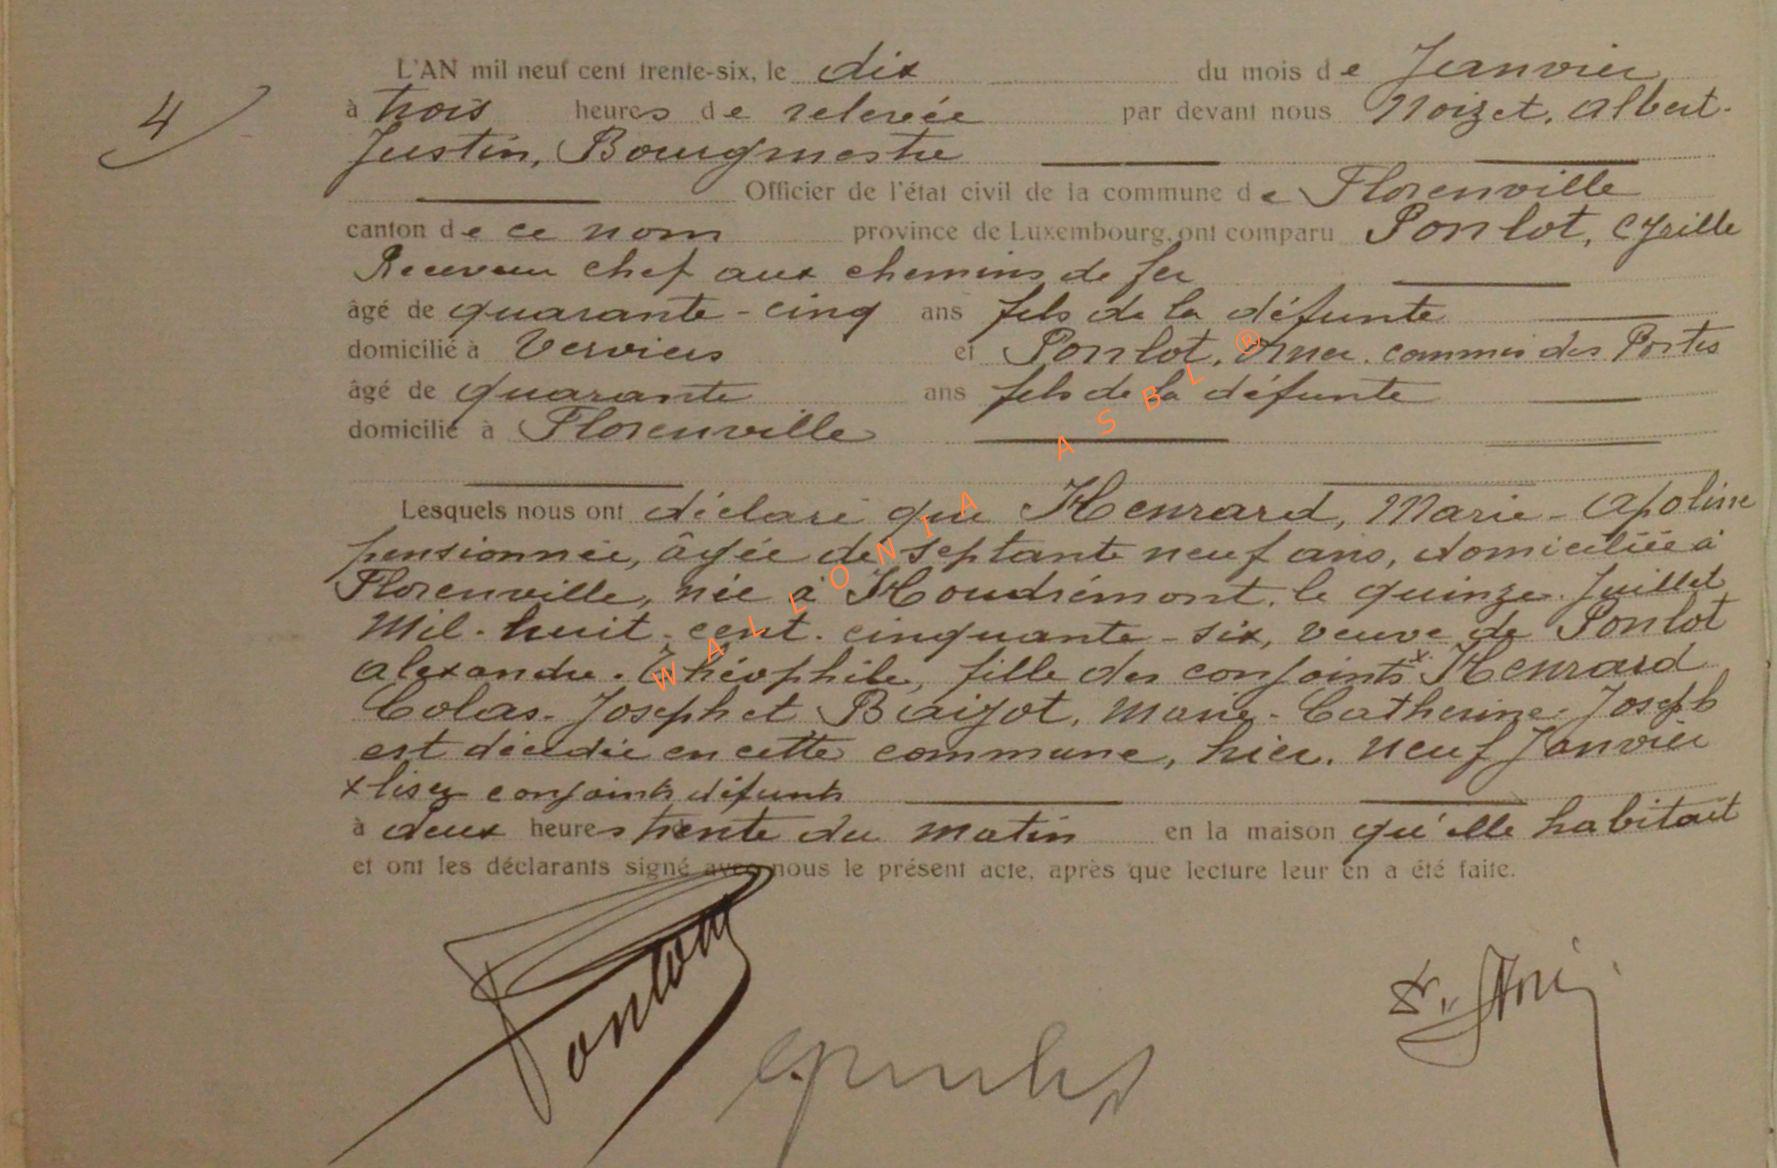 4
L'AN mil neuf cent trente-six, le dix du mois de Janvier
à trois heures de relevée par devant nous Noizet, Albert-
Justin, Bourgmestre
Officier de l'état civil de la commune de Florenville
canton de ce nom province de Luxembourg, ont comparu Ponlot, Cyrille
Receveur chef aux chemins de fer
âgé de quarante-cinq ans fils de la défunte
domicilié à Verviers et Ponlot, Omer, commis des Postes
âgé de quarante ans fils de la défunte
domicilié à Florenville
Lesquels nous ont déclaré que Henrard, Marie-Apoline
pensionnée, âgée de septante neuf ans, domiciliée à
Florenville, née à Houdrémont, le quinze Juillet
Mil-huit-cent-cinquante-six, veuve de Ponlot
Alexandre-Théophile, fille des conjoints x Henrard
Colas-Joseph et Baijot, Marie-Catherine-Joseph
est décédée en cette commune, hier, neuf Janvier
x lisez conjoints défunts
à deux heures trente du matin en la maison qu'elle habitait
et ont les déclarants signé avec nous le présent acte, après que lecture leur en a été faite.
WALLONIA ASBL ®
Ponlot